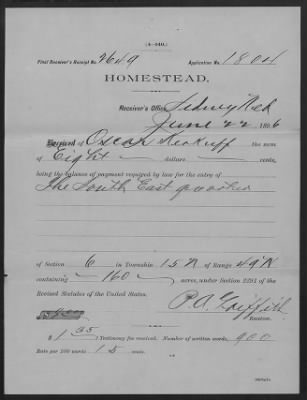 (4-140.)
Final Receiver's Receipt No. 2649 Application No. 1804
HOMESTEAD.
Receiver's Office, Sidney Neb
June 22, 1886
Received of Oscar the sum
of Eight dollars cents,
being the balance of payment required by law for the entry of
The South East quarter
of Section 6 in Township 15 N of Range 49 W
containing 160 acres, under Section 2291 of the
Revised Statutes of the United States.
P. A. Griffith
Receiver.
$ 1 35 Testimony fee received. Number of written words, 900
Rate per 100 words 15 cents.